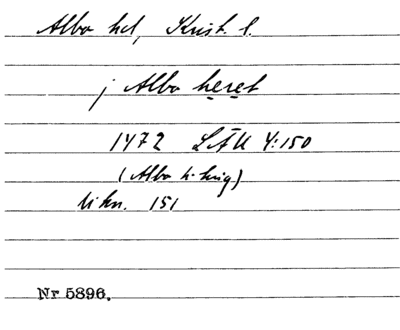 Albo hd, Krist. l.
j Albo heret
1472 LÄU 4:150
(Albo h-hrig)
likn. 151
Nr 5896.